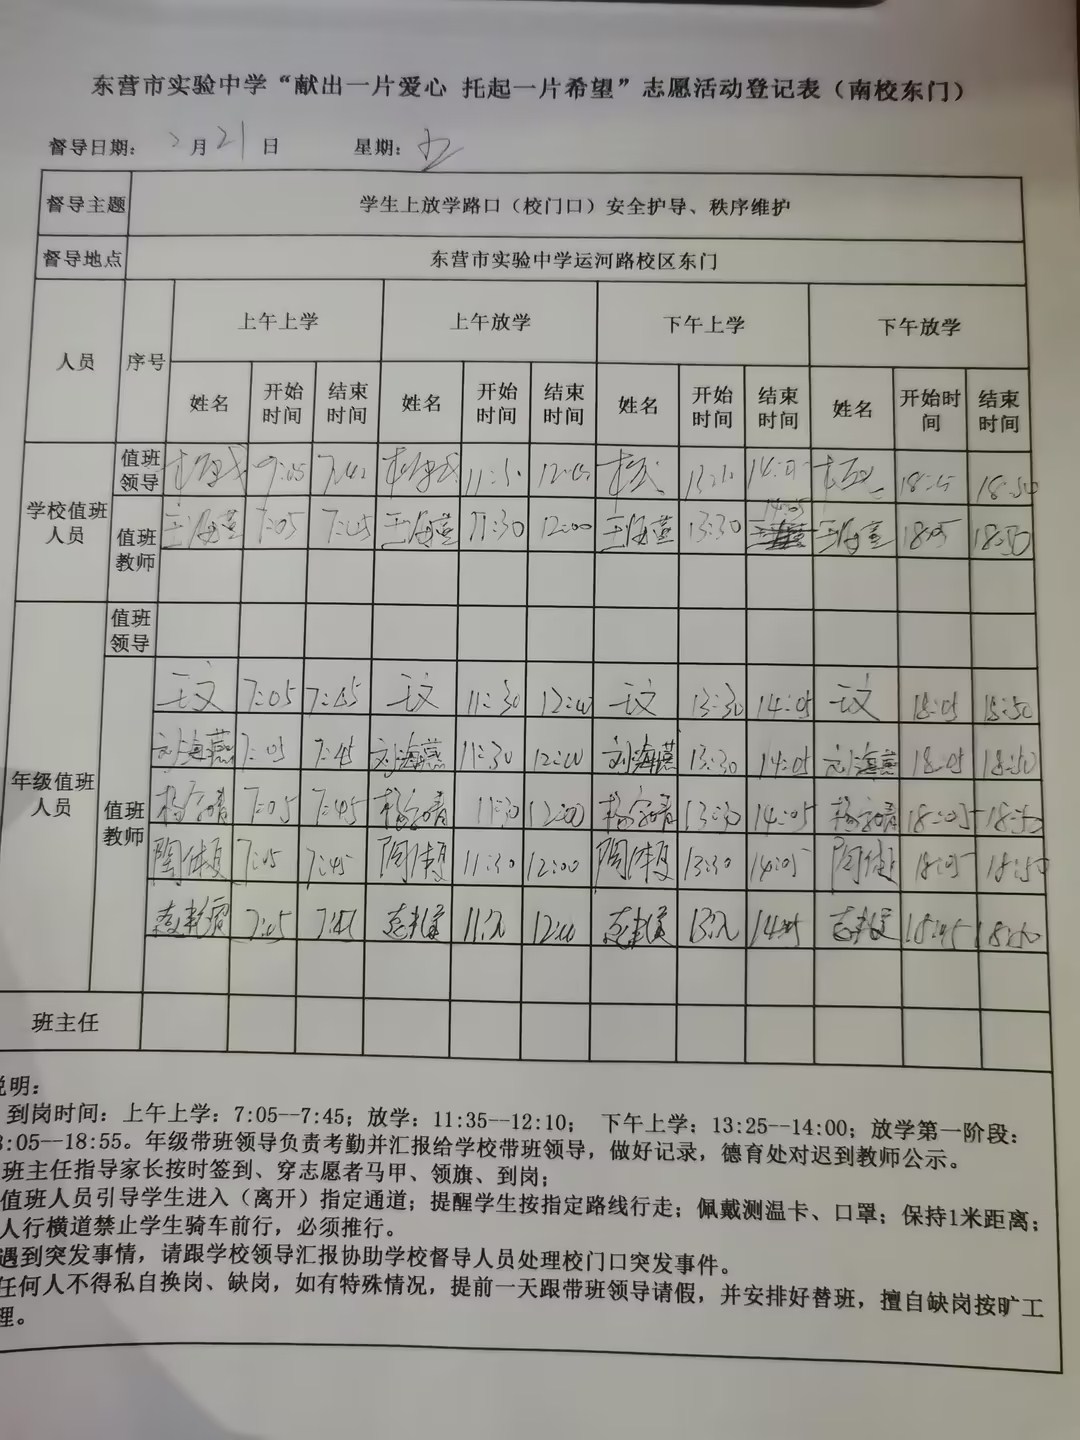 东营市实验中学“献出一片爱心 托起一片希望”志愿活动登记表（南校东门）
督导日期： 2月21日 星期：五
督导主题 学生上放学路口（校门口）安全护导、秩序维护
督导地点 东营市实验中学运河路校区东门
人员 序号 上午上学 上午放学 下午上学 下午放学
姓名 开始时间 结束时间 姓名 开始时间 结束时间 姓名 开始时间 结束时间 姓名 开始时间 结束时间
学校值班人员 值班领导 7:05 11:30
值班教师 王海莲 7:05 7:45 王海莲 11:30 12:00 王海莲 13:30 14:05 王海莲 18:05 18:50
年级值班人员 值班领导
值班教师 王文 7:05 7:45 王文 11:30 12:00 王文 13:30 14:05 王文 18:05 18:50
刘海燕 7:05 7:45 刘海燕 11:30 12:00 刘海燕 13:30 14:05 刘海燕 18:05 18:50
7:05 7:45 11:30 12:00 13:30 14:05 18:05 18:50
7:05 7:45 11:30 12:00 13:30 14:05 18:05 18:50
7:05
班主任
说明：
到岗时间：上午上学：7:05--7:45；放学：11:35--12:10； 下午上学：13:25--14:00；放学第一阶段：
8:05--18:55。年级带班领导负责考勤并汇报给学校带班领导，做好记录，德育处对迟到教师公示。
班主任指导家长按时签到、穿志愿者马甲、领旗、到岗；
值班人员引导学生进入（离开）指定通道；提醒学生按指定路线行走；佩戴测温卡、口罩；保持1米距离；
人行横道禁止学生骑车前行，必须推行。
遇到突发事情，请跟学校领导汇报协助学校督导人员处理校门口突发事件。
任何人不得私自换岗、缺岗，如有特殊情况，提前一天跟带班领导请假，并安排好替班，擅自缺岗按旷工
理。